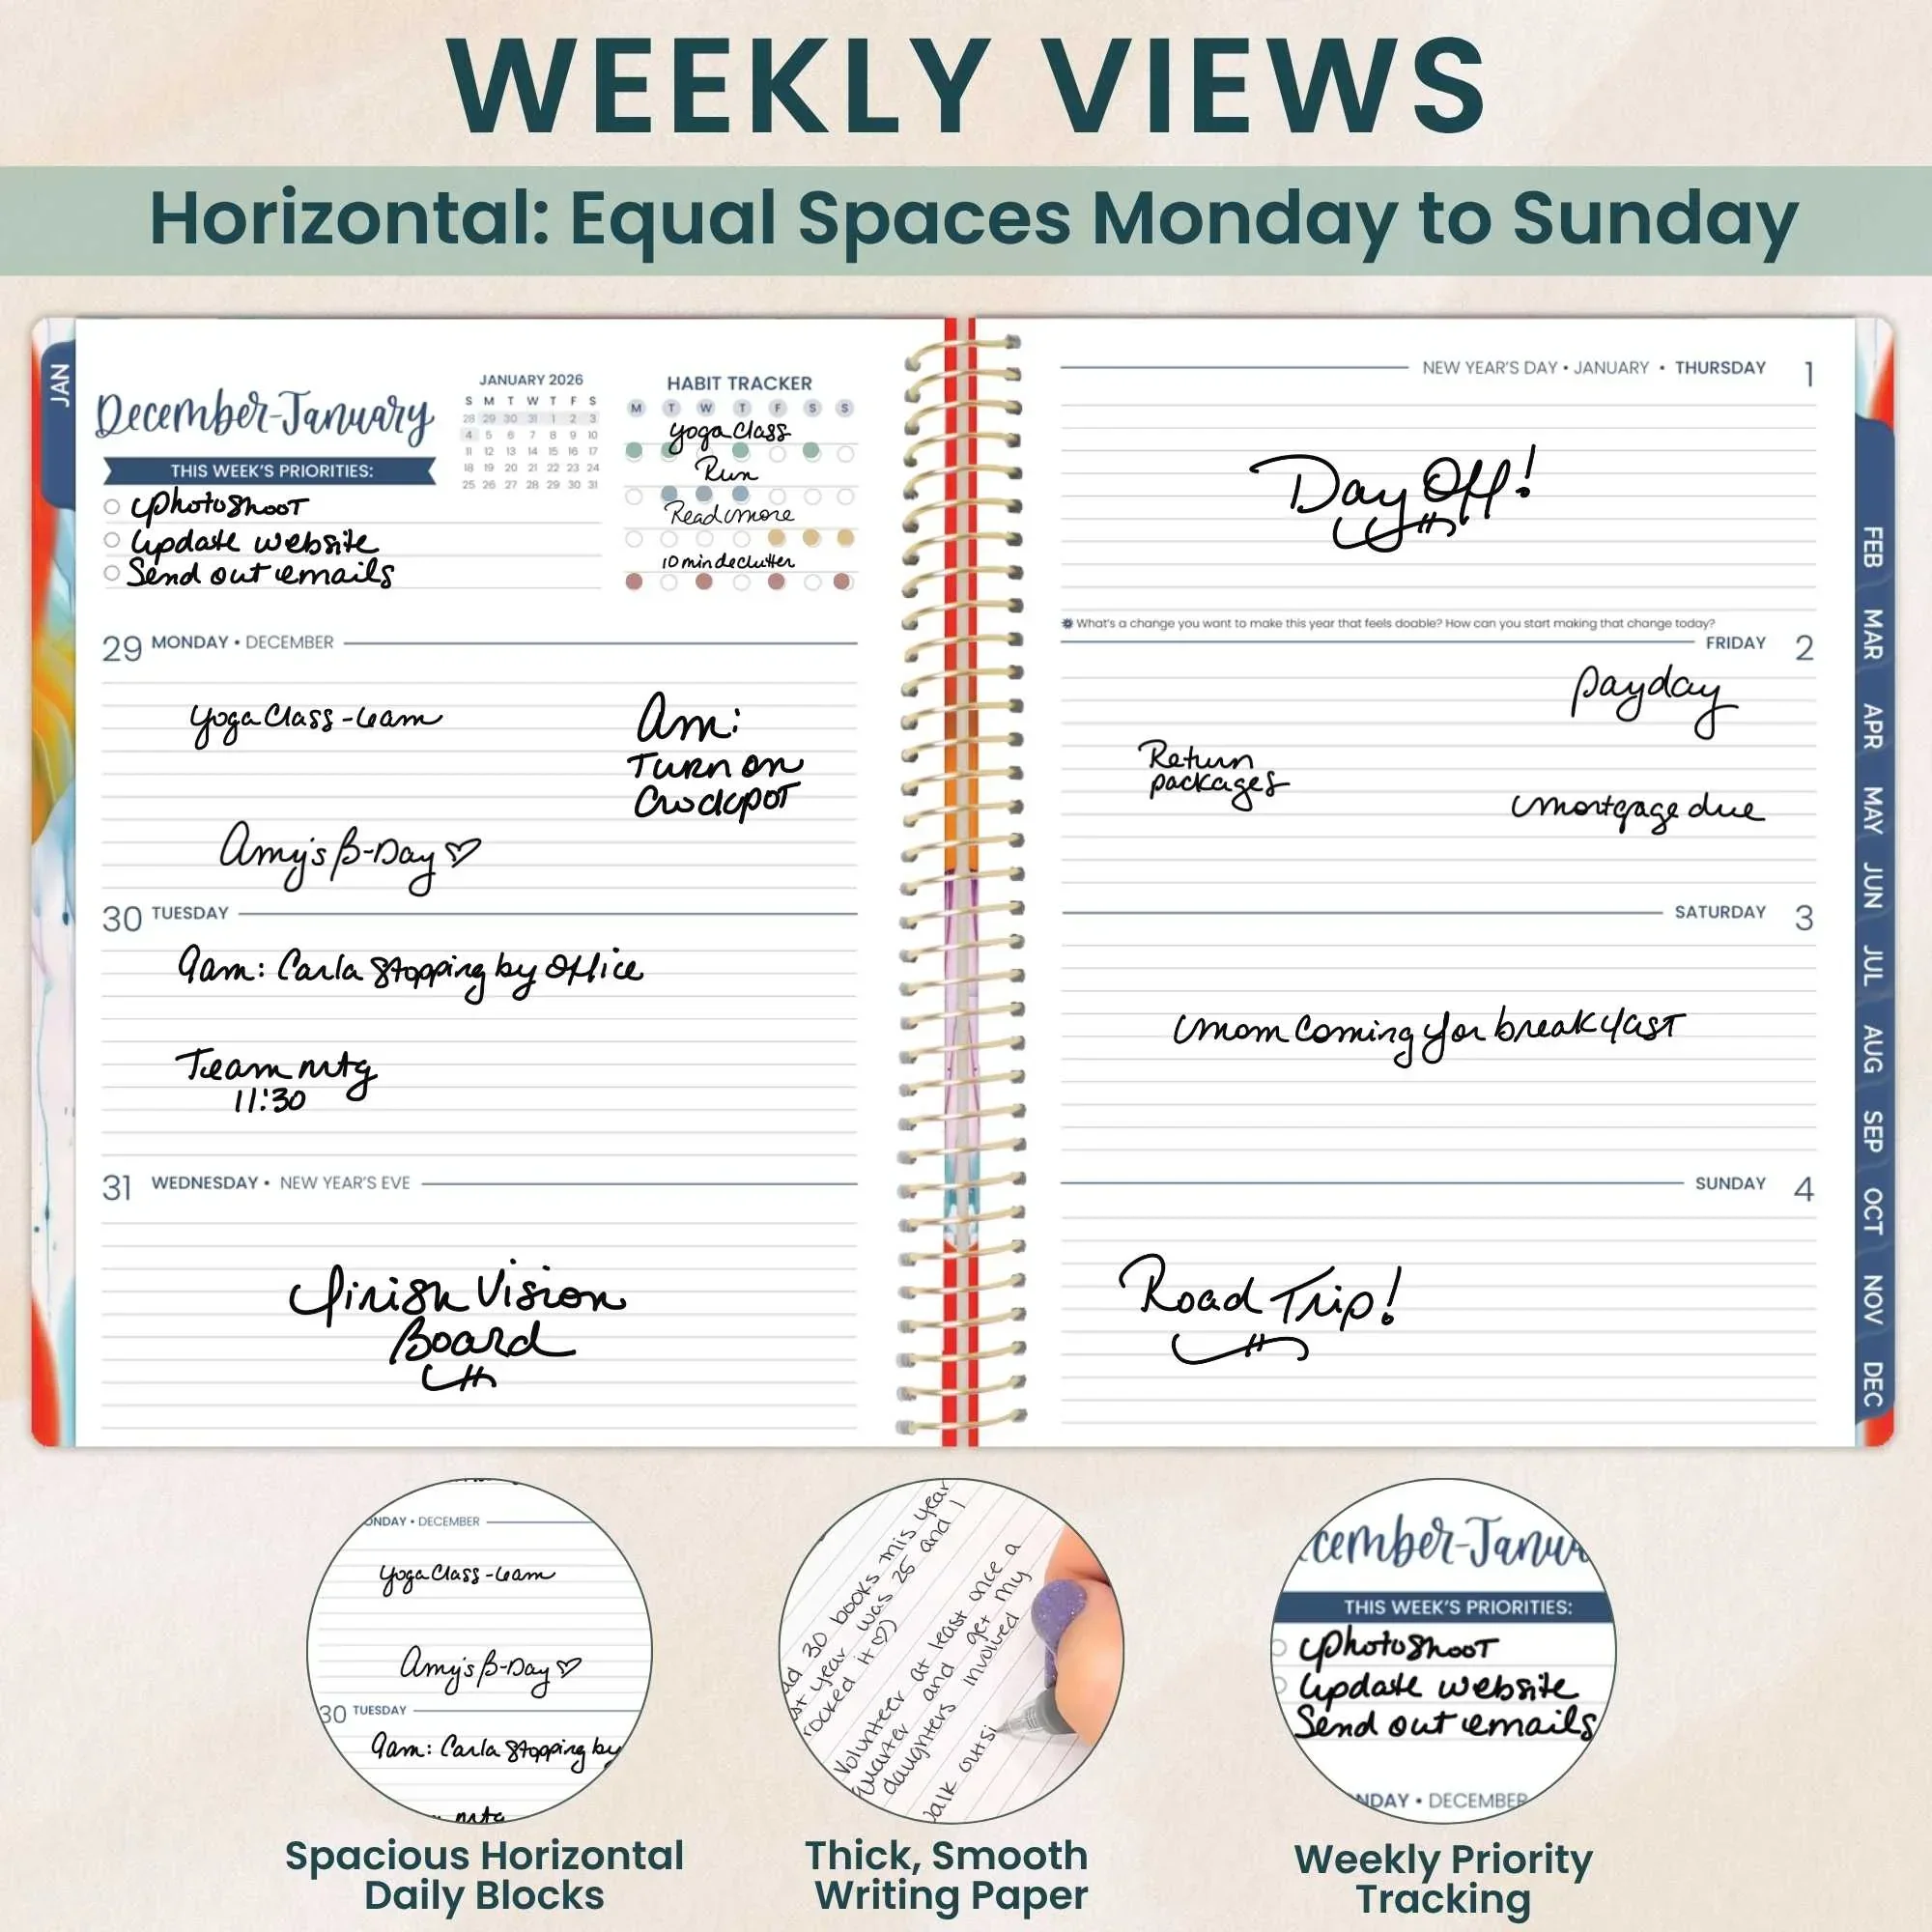 WEEKLY VIEWS
Horizontal: Equal Spaces Monday to Sunday
JAN
December-January
THIS WEEK'S PRIORITIES:
Photoshoot
Update website
Send out emails
JANUARY 2026
S M T W T F S
28 29 30 31 1 2 3
4 5 6 7 8 9 10
11 12 13 14 15 16 17
18 19 20 21 22 23 24
25 26 27 28 29 30 31
HABIT TRACKER
M T W T F S S
Yoga Class
Run
Read more
10 min declutter
29 MONDAY • DECEMBER
Yoga Class - 6am
Am:
Turn on
Crockpot
Amy's B-Day ♡
30 TUESDAY
9am: Carla Stopping by Office
Team mtg
11:30
31 WEDNESDAY • NEW YEAR'S EVE
Finish Vision
Board
NEW YEAR'S DAY • JANUARY • THURSDAY 1
Day Off!
What's a change you want to make this year that feels doable? How can you start making that change today?
FRIDAY 2
Payday
Return
packages
Mortgage due
SATURDAY 3
Mom Coming for breakfast
SUNDAY 4
Road Trip!
FEB
MAR
APR
MAY
JUN
JUL
AUG
SEP
OCT
NOV
DEC
ONDAY • DECEMBER
Yoga Class - 6am
Amy's B-Day ♡
30 TUESDAY
9am: Carla Stopping by
mtg
Spacious Horizontal
Daily Blocks
ad 30 books this year
st year was 25 and I
rocked it ♡)
Volunteer at least once a
quarter and get my
daughters involved
walk outsi
Thick, Smooth
Writing Paper
cember-Janua
THIS WEEK'S PRIORITIES:
Photoshoot
Update website
Send out emails
NDAY • DECEMBER
Weekly Priority
Tracking